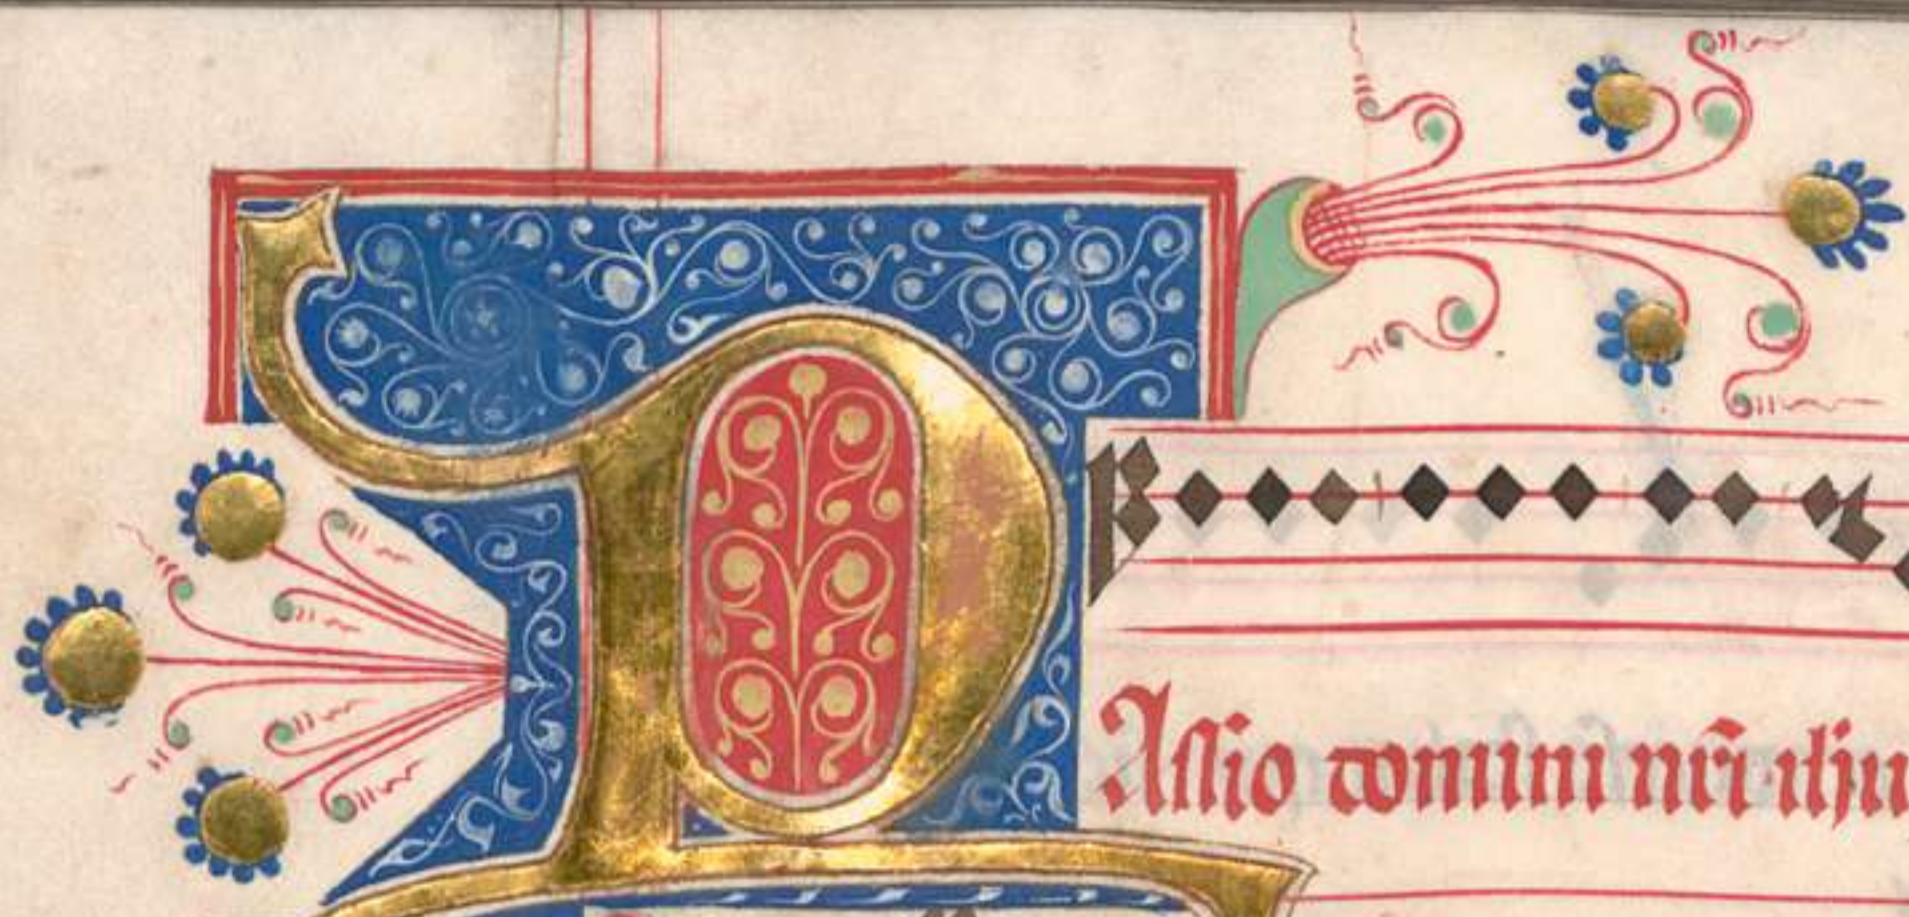 PAssio domini nr̄i ihu